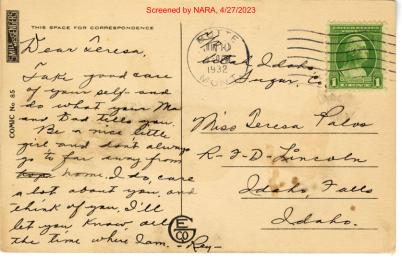 Screened by NARA, 4/27/2023
THIS SPACE FOR CORRESPONDENCE
COMIC No 85
BUTTE
JUN
1932
MONT.
1 CENT 1
Dear Teresa,
Take good care
of your self and
do what your Ma
and Dad tells you.
Be a nice little
girl and don't always
go to far away from
home. I do, care
a lot about you, and
think of you. I'll
let you know, all
the time where I am.
-Rey-
Idaho
Sugar, Co.
Miss Teresa Palos
R-F-D-Lincoln
Idaho, Falls
Idaho.